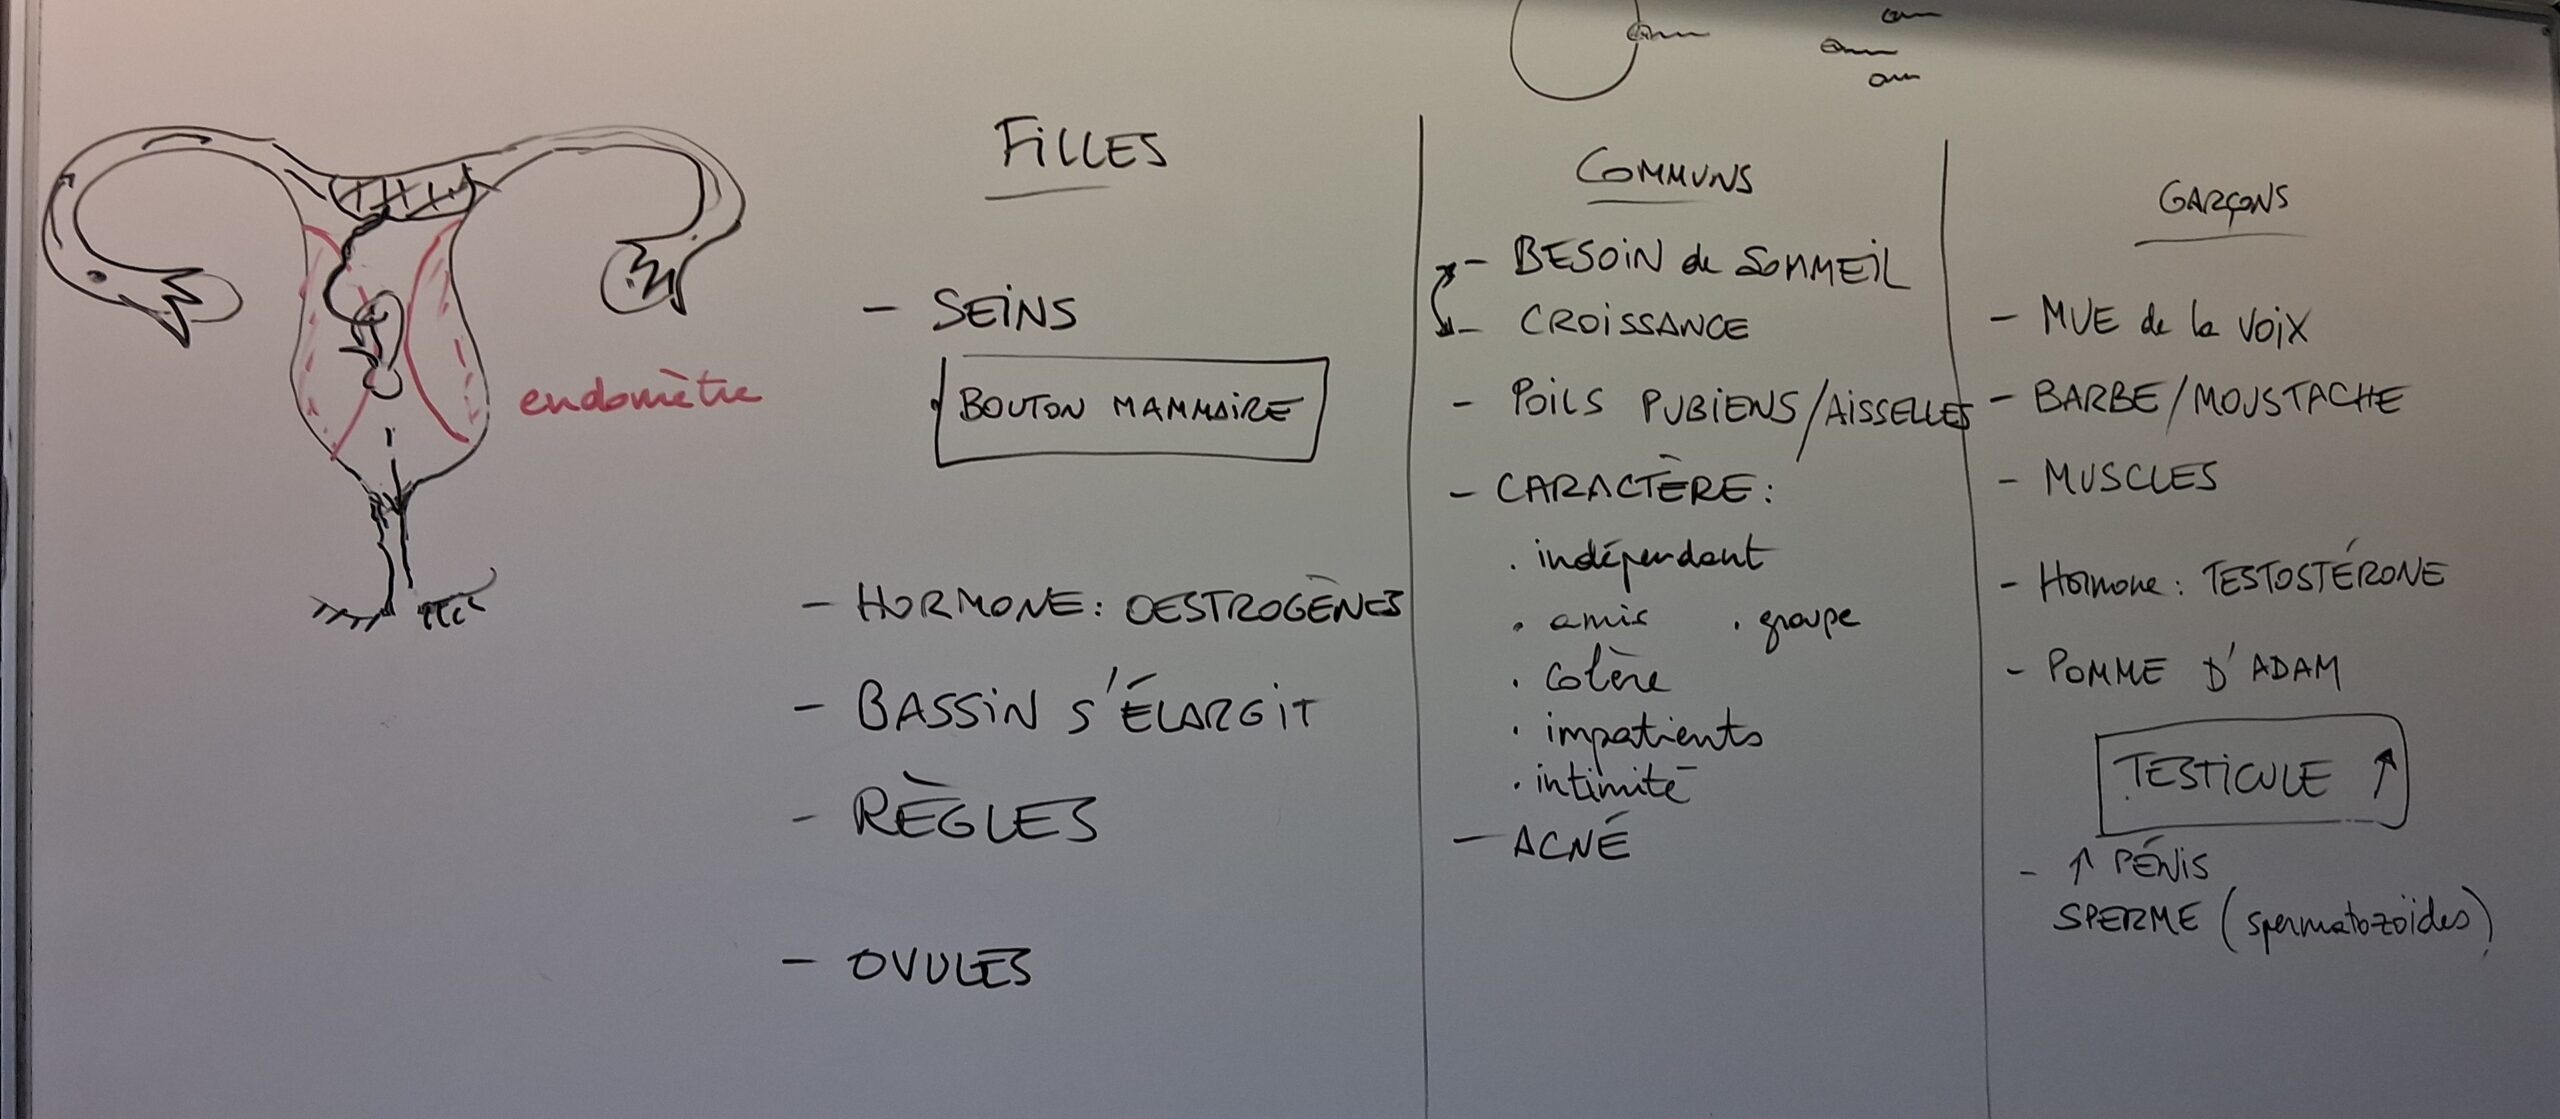 endomètre
FILLES
- SEINS
BOUTON MAMMAIRE
- HORMONE: OESTROGÈNES
- BASSIN S'ÉLARGIT
- RÈGLES
- OVULES
COMMUNS
- BESOIN de SOMMEIL
- CROISSANCE
- POILS PUBIENS/AISSELLES
- CARACTÈRE:
. indépendant
. amis . groupe
. colère
. impatients
. intimité
- ACNÉ
GARÇONS
- MUE de la VOIX
- BARBE/MOUSTACHE
- MUSCLES
- Hormone: TESTOSTÉRONE
- POMME D'ADAM
TESTICULE ↑
- ↑ PÉNIS
SPERME (spermatozoïdes)